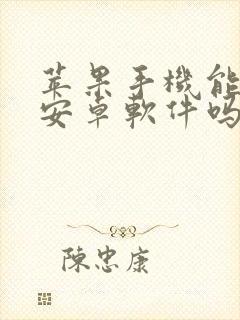 苹果手機能
安卓軟件吗
陳忠康